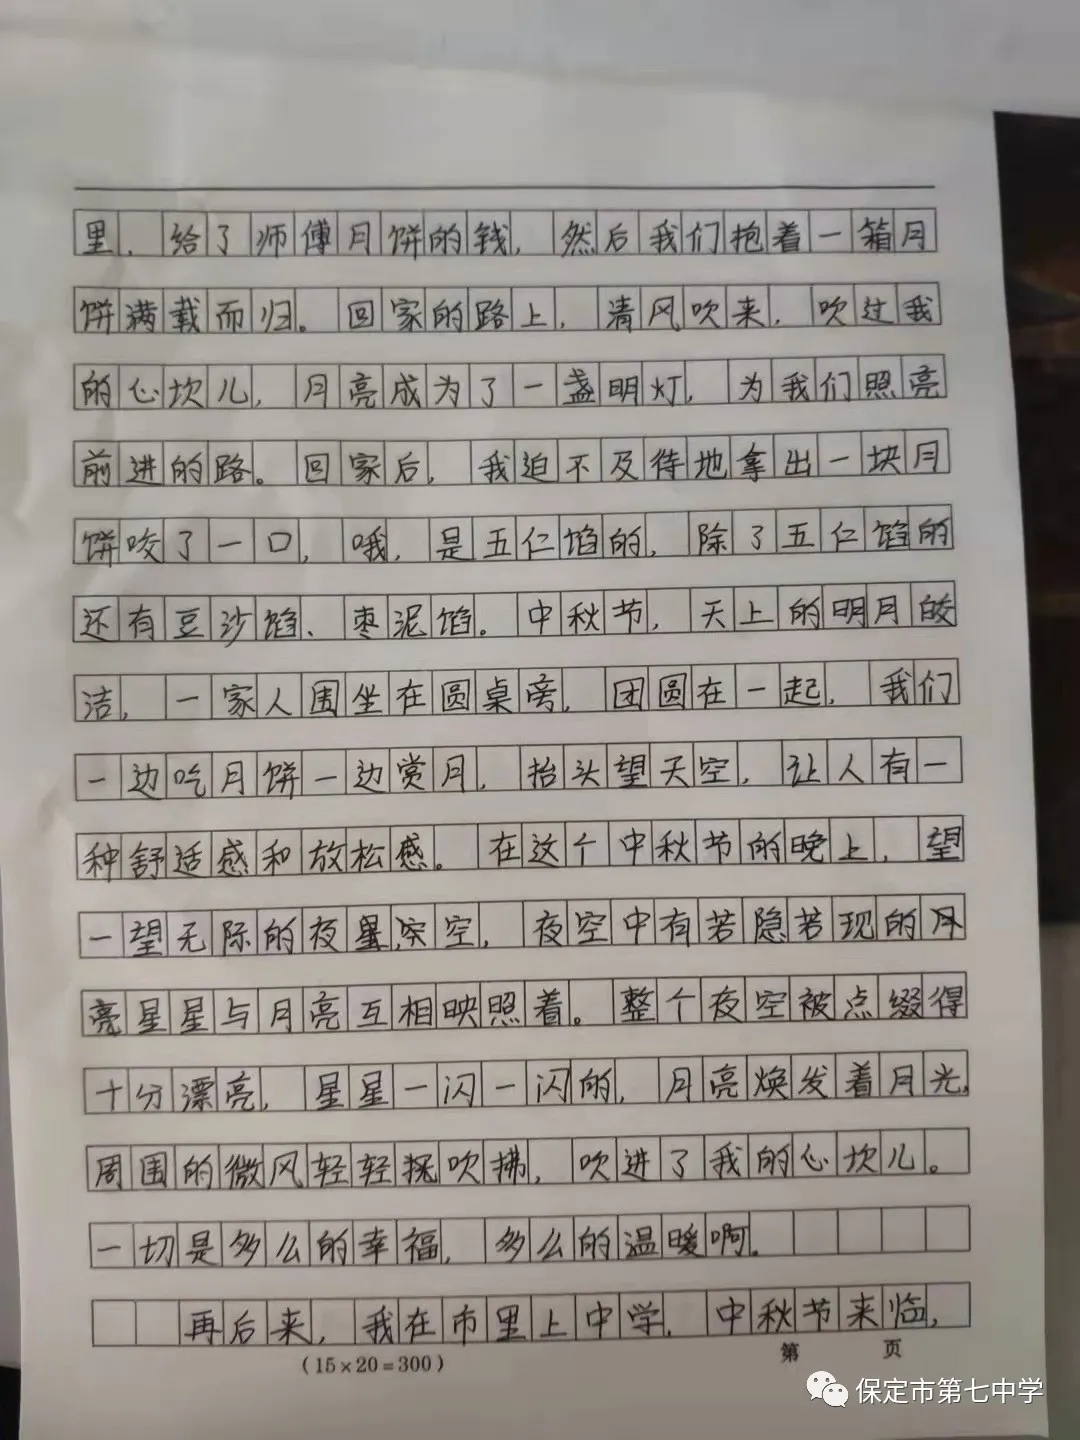 里，给了师傅月饼的钱，然后我们抱着一箱月
饼满载而归。回家的路上，清风吹来，吹过我
的心坎儿，月亮成为了一盏明灯，为我们照亮
前进的路。回家后，我迫不及待地拿出一块月
饼咬了一口，哦，是五仁馅的，除了五仁馅的
还有豆沙馅、枣泥馅。中秋节，天上的明月皎
洁，一家人围坐在圆桌旁，团圆在一起，我们
一边吃月饼一边赏月，抬头望天空，让人有一
种舒适感和放松感。在这个中秋节的晚上，望
一望无际的夜空，夜空中有若隐若现的月
亮星星与月亮互相映照着。整个夜空被点缀得
十分漂亮，星星一闪一闪的，月亮焕发着月光，
周围的微风轻轻吹拂，吹进了我的心坎儿。
一切是多么的幸福，多么的温暖啊。
再后来，我在市里上中学，中秋节来临，
（15×20=300）
第 页
保定市第七中学